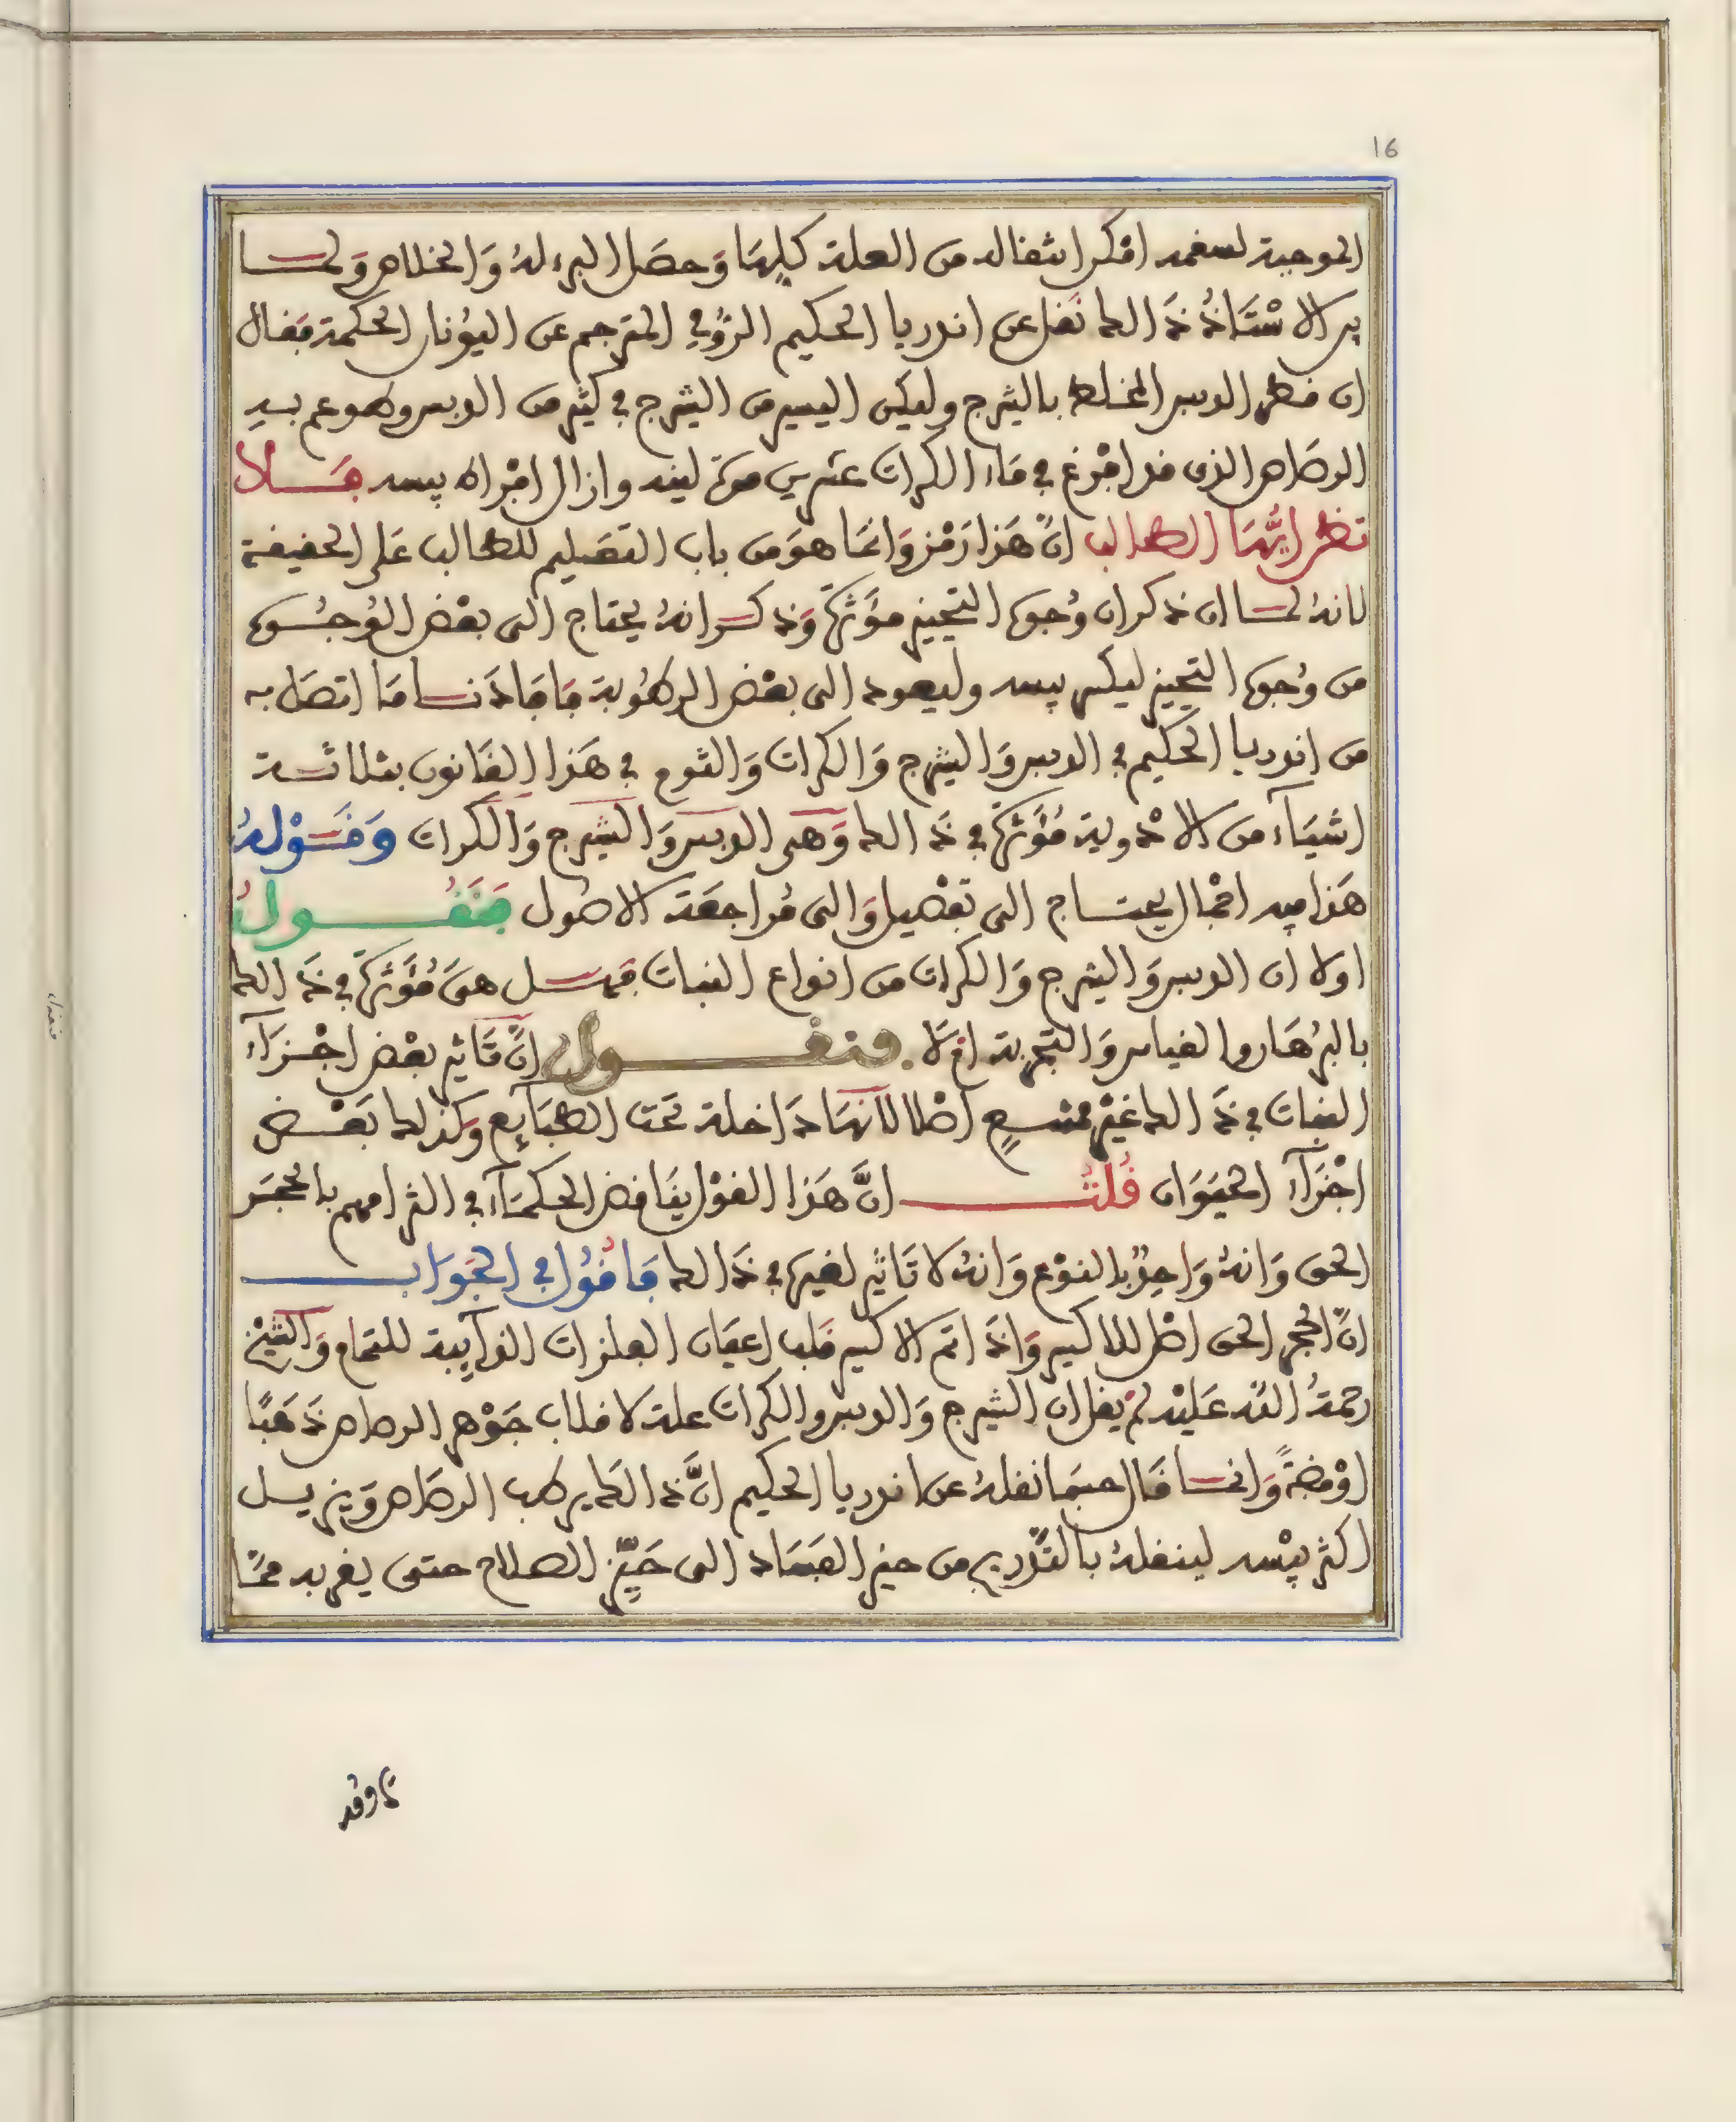 16
الموجبة لسقمه امكن انتقاله من العلة كلها وَحصَل البرء لهُ وَالخلاص وَلمــا
بين الاسْتَاذُ ذَالك نقل عن اندريا الحكيم الرُّومي المترجم عن اليُونان الحكمة فقال
ان قطر الدبس المخلط بالشيرج وليكن اليسير من الشيرج في كثير من الدبس وهو عم بيد
الرصَاص الذي قد افرغ في مَاء الكراث عشرين مرة لينه وازال افراط يبسه فَــلا
تظن ايُّهَا الطالب انَّ هَذا رَمْز وَانمَا هوَ من باب التعليم للطالب عَلى الحقيقة
لانهُ لمــا ان ذكر ان وُجوه التجيز مؤثرَة وَذكــر انهُ يحتاج الى بعْض الوُجــوه
من وُجوه التجيز ليكسر يبسه وليعود الى بعْض الرطُوبة فَافَادَنــا مَا اتصَل به
من اندريا الحكيم في الدبس وَالشيرج وَالكراث وَالثوم في هَذا القَانون بثلاثــة
اشيَآء من الادْوية مُؤثرَة في ذَالك وَهي الدبس وَالشيرج وَالكراث وَقَــوْلهُ
هَذا فيه اجْمال يحتــاج الى تفْصيل وَالى مُراجعَة الاصُول فَنَقُــولُ
اولا ان الدبس وَالشيرج وَالكراث من انواع النبات فهــل هيَ مُؤثرَة في ذَالك
بالبرْهَان والقياس وَالتجربة امْ لَا . فنقــول انَّ تَاثير بعْض اجْــزَآء
النبات في ذَالك غيْر ممتنــعٍ اصْلا لانهَا دَاخلة تحت الطبَآئع وَكذلك بَعْــض
اجْزَآء الحيَوَان قُلتُــ انَّ هَذا القوْل ينَاقض الحكمَآء في التزامهم بالحجَر
الحق وَانهُ وَاحِدٌ بالنوْع وَانهُ لا تَاثير لغيره في ذَالك فَاقُولُ في الجَوَاب
انَّ الحجر الحق اصْل للاكسير وَاذَا تم الاكسير قلب اعيَان الفلزات الذآيبة للتمام وَالشيْخ
رحمَةُ اللّٰه عَليْه لمْ يقل ان الشيرج وَالدبس والكراث علة لاقلاب جَوْهر الرصاص ذَهَبًا
اوْ فضةً وَانمــا قَال حيثما نقلهُ عن اندريا الحكيم انَّ ذَالك يرطب الرصَاص وَيزيــل
اكثر يبْسه لينقلهُ بالتَّدريج من حيز الفسَاد الى حَيِّز الصلاح حتى يقربه ممَّا